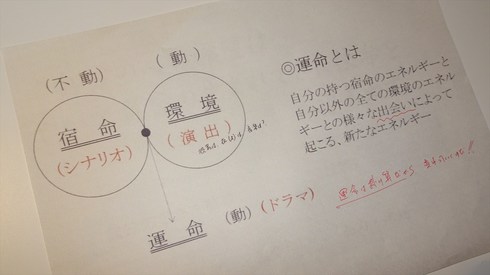 (不動)
(動)
宿命
(シナリオ)
環境
(演出)
運命 (動)(ドラマ)
◎運命とは
自分の持つ宿命のエネルギーと
自分以外の全ての環境のエネル
ギーとの様々な出会いによって
起こる、新たなエネルギー